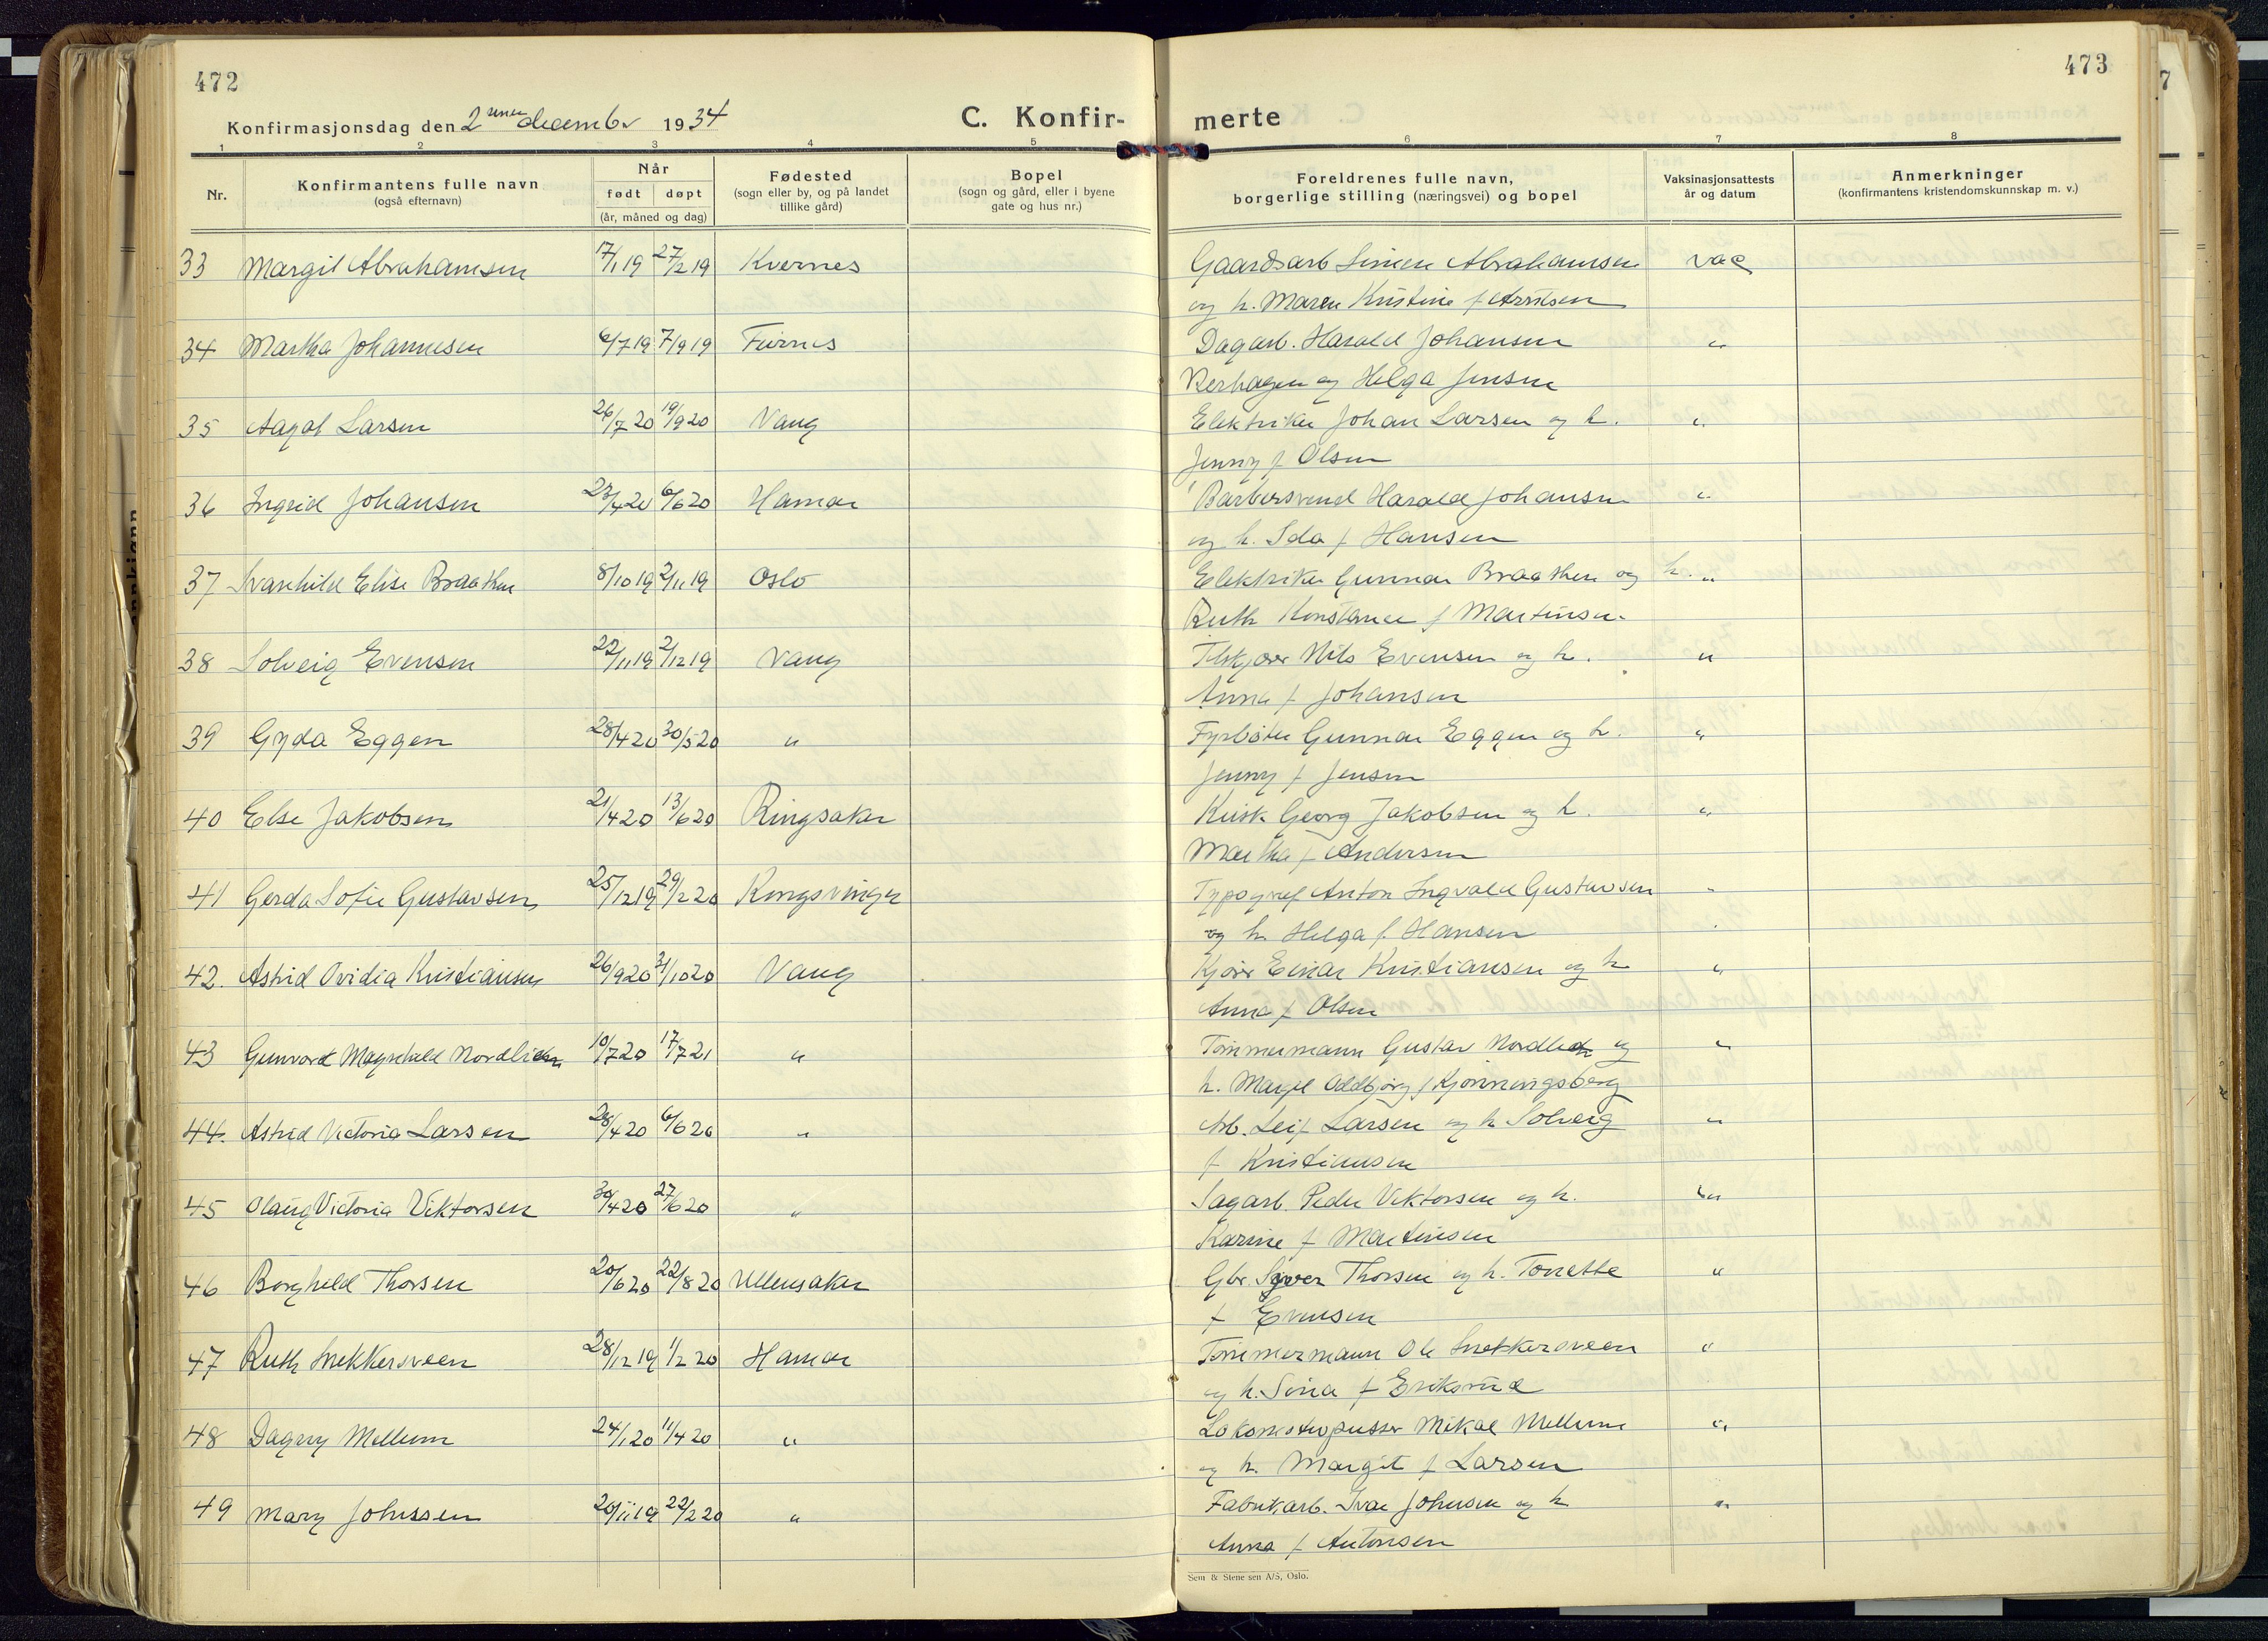 472
Konfirmasjonsdag den 2nen december 1934
C. Konfir-
1 2 3 4 5
Nr.
Konfirmantens fulle navn
(også efternavn)
Når
født døpt
(år, måned og dag)
Fødested
(sogn eller by, og på landet
tillike gård)
Bopel
(sogn og gård, eller i byene
gate og hus nr.)
33 Margit Abrahamsen 17/1 19 27/2 19 Kvernes
34 Martha Johannesen 6/7 19 7/9 19 Furnes
35 Aagot Larsen 26/7 20 19/9 20 Vang
36 Ingrid Johansen 23/4 20 6/6 20 Hamar
37 Svanhild Elise Braathen 8/10 19 2/11 19 Oslo
38 Solveig Evensen 22/11 19 2/12 19 Vang
39 Gyda Eggen 28/4 20 30/5 20 "
40 Else Jakobsen 21/4 20 13/6 20 Ringsaker
41 Gerda Sofie Gustavsen 25/12 19 29/2 20 Kongsvinger
42. Astrid Ovidia Kristiansen 26/9 20 31/10 20 Vang
43 Gunvord Magnhild Nordlien 10/7 20 17/7 21 "
44. Astrid Victoria Larsen 28/4 20 6/6 20 "
45 Olaug Victoria Viktorsen 30/4 20 27/6 20 "
46 Borghild Thorsen 20/6 20 22/8 20 Ullensaker
47 Ruth Snekkersveen 28/12 19 1/2 20 Hamar
48 Dagny Mellum 24/1 20 11/4 20 "
49 Mary Johnssen 20/11 19 22/2 20 "
473
merte
6 7 8
Foreldrenes fulle navn,
borgerlige stilling (næringsvei) og bopel
Vaksinasjonsattests
år og datum
Anmerkninger
(konfirmantens kristendomskunnskap m. v.)
Gaardsarb Simen Abrahamsen vac
og h. Maren Kristine f Arntsen
Dagarb. Harald Johansen "
og Helga Jensen
Elektriker Johan Larsen og h. "
Jenny f Olsen
Barbersvend Harald Johansen "
og h. Ida f Hansen
Elektriker Gunnar Braathen og h. "
Ruth Konstance f Martinsen
Nils Evensen og h. "
Anna f Johansen
Fyrbøter Gunnar Eggen og h. "
Jenny f Jensen
Kusk Georg Jakobsen og h. "
Martha f Andersen
Typograf Anton Ingvald Gustavsen "
og h. Helga f. Hansen
Kjører Einar Kristiansen og h "
Anna f Olsen
Tømmermann Gustav Nordlien og "
h. Margit Oddbjørg f Kjonningsberg
Arb. Leif Larsen og h Solveig "
f Kristiansen
Sagarb. Peder Viktorsen og h. "
Karine f Martinsen
Gbr. Syver Thorsen og h. Tonette "
f Evensen
Tømmermann Ole Snekkersveen "
og h. Sina f Eriksrud
Lokomotivpusser Mikal Mellum "
og h. Margit f Larsen
Fabrikarb. Ivar Johnsen og h "
Anna f Antonsen
Sem & Stenersen A/S, Oslo.